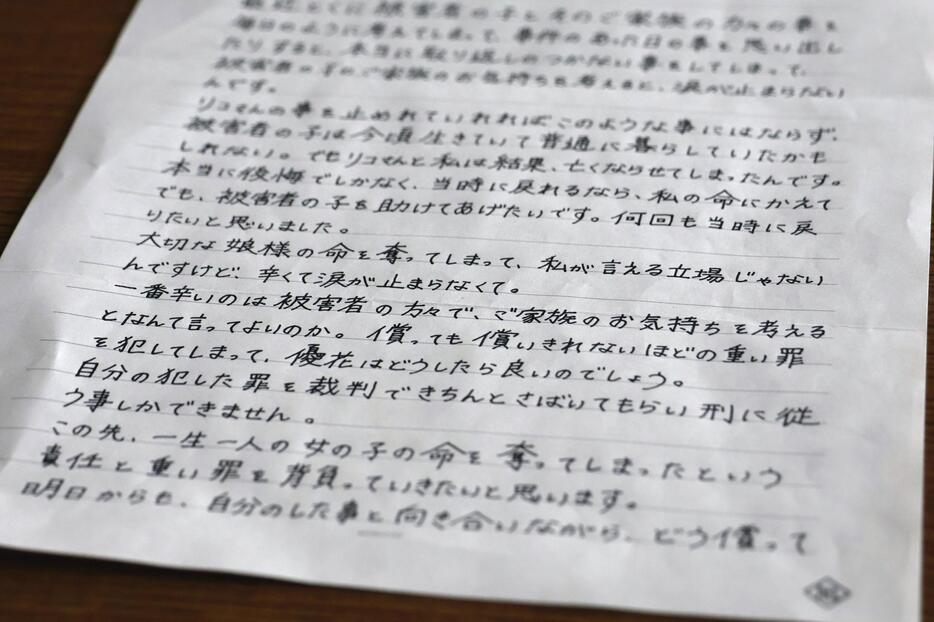 最近とくに被害者の子とそのご家族の方々の事を
毎日のように考えてしまって、事件のあった日の事を思い出し
たりすると、本当に取り返しのつかない事をしてしまって、
被害者の子のご家族のお気持ちを考えると、涙が止まらない
んです。
リコさんの事を止めれていれればこのような事にはならず、
被害者の子は今頃生きていて普通に暮らしていたかも
しれない。でもリコさんと私は結果、亡くならせてしまったんです。
本当に後悔でしかなく、当時に戻れるなら、私の命にかえて
でも、被害者の子を助けてあげたいです。何回も当時に戻
りたいと思いました。
大切な娘様の命を奪ってしまって、私が言える立場じゃない
んですけど、辛くて涙が止まらなくて。
一番辛いのは被害者の方々で、ご家族のお気持ちを考える
となんて言ってよいのか。償っても償いきれないほどの重い罪
を犯してしまって、優花はどうしたら良いのでしょう。
自分の犯した罪を裁判できちんとさばいてもらい刑に従
う事しかできません。
この先、一生一人の女の子の命を奪ってしまったという
責任と重い罪を背負っていきたいと思います。
明日からも、自分のした事と向き合いながら、どう償って